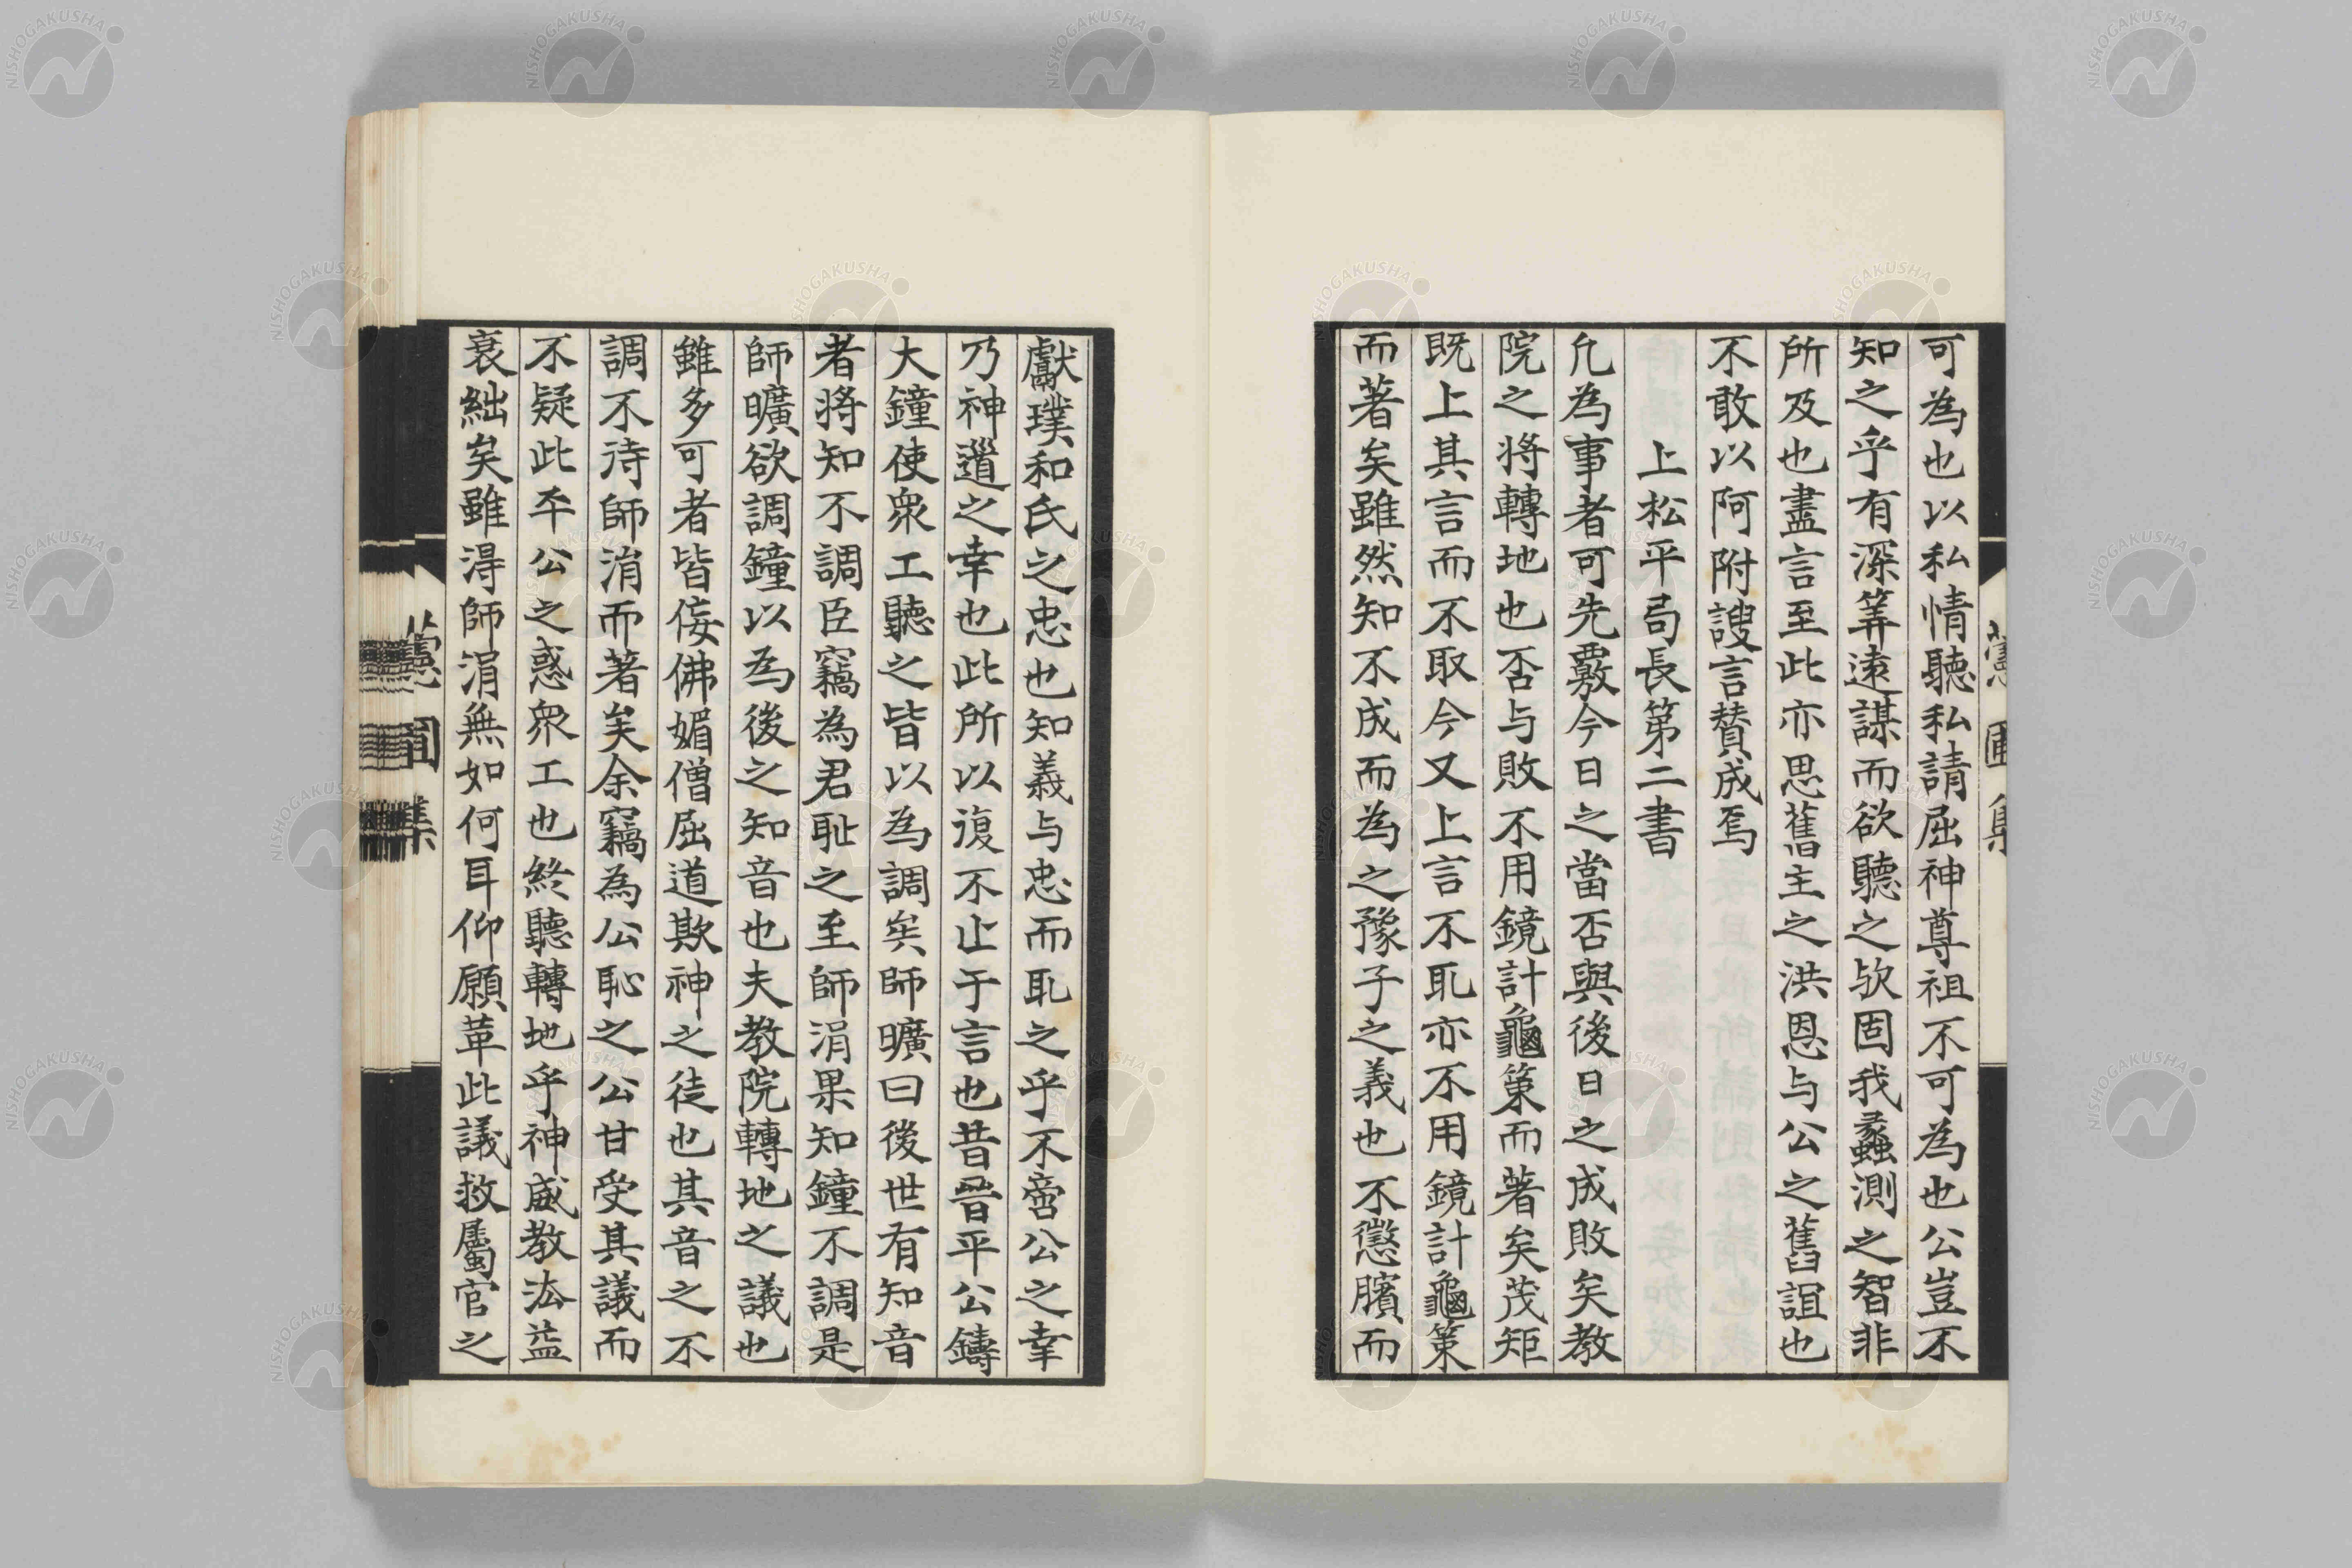 可為也以私情聽私請屈神尊祖不可為也公豈不
知之乎有深筭遠謀而欲聽之欤固我蠡測之智非
所及也盡言至此亦思舊主之洪恩与公之舊誼也
不敢以阿附謏言賛成焉
上松平局長第二書
凡為事者可先覈今日之當否與後日之成敗矣教
院之將轉地也否与敗不用鏡計龜策而著矣茂矩
既上其言而不取今又上言不耴亦不用鏡計龜策
而著矣雖然知不成而為之豫子之義也不懲臏而
獻璞和氏之忠也知義与忠而耴之乎不啻公之幸
乃神道之幸也此所以復不止于言也昔晉平公鑄
大鐘使衆工聽之皆以為調矣師曠曰後世有知音
者將知不調臣竊為君恥之至師涓果知鐘不調是
師曠欲調鐘以為後之知音也夫教院轉地之議也
雖多可者皆侫佛媚僧屈道欺神之徒也其音之不
調不待師涓而著矣余竊為公恥之公甘受其議而
不疑此平公之惑衆工也終聽轉地乎神威教法益
衰絀矣雖淂師涓無如何耳仰願革此議救屬官之